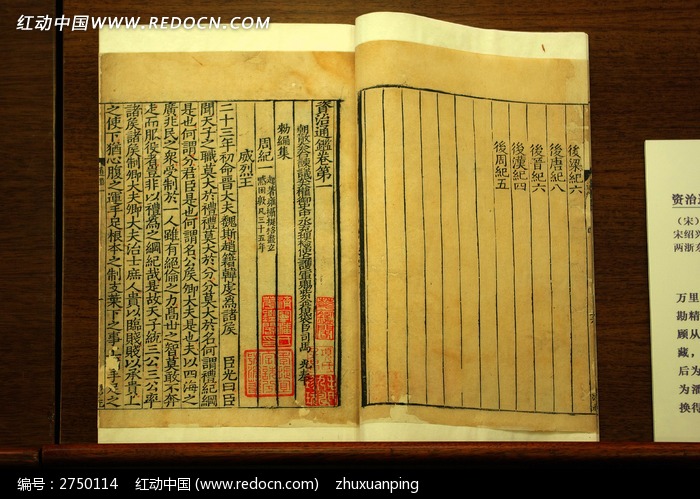 红动中国 WWW.REDOCN.COM
後梁紀六
後唐紀八
後晉紀六
後漢紀四
後周紀五
資治通鑑卷第一
朝散大夫右諫議大夫權御史中丞充理檢使上護軍賜紫金魚袋臣司馬 光奉
勑編集
周紀一
威烈王
二十三年初命晉大夫魏斯趙籍韓虔爲諸侯 臣光曰臣
聞天子之職莫大於禮禮莫大於分分莫大於名何謂禮紀綱
是也何謂分君臣是也何謂名公侯卿大夫是也夫以四海之
廣兆民之衆受制於一人雖有絕倫之力高世之智莫敢不奔
走而服役者豈非以禮爲之綱紀哉是故天子統三公三公率
諸侯諸侯制卿大夫卿大夫治士庶人貴以臨賤賤以承貴上
之使下猶心腹之運手足根本之制支葉下之事上
资治通
（宋）
宋绍兴
两浙东
万里
勘精
顾从
藏，
后为
为潘
换得
编号：2750114 红动中国 (www.redocn.com) zhuxuanping